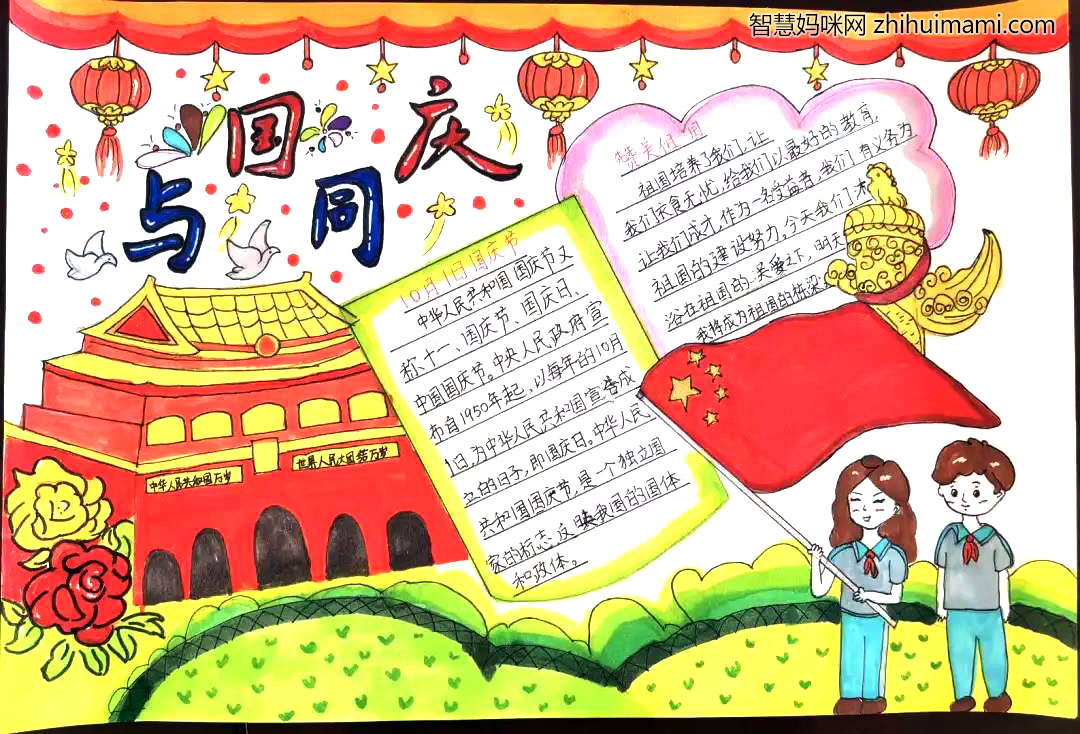 智慧妈咪网 zhihuimami.com
与国同庆
10月1日国庆节
中华人民共和国国庆节又
称十一、国庆节、国庆日、
中国国庆节。中央人民政府宣
布自1950年起,以每年的10月
1日,为中华人民共和国宣告成
立的日子,即国庆日。中华人民
共和国国庆节,是一个独立国
家的标志,反映我国的国体
和政体。
赞美祖国
祖国培养了我们,让
我们衣食无忧,给我们以最好的教育,
让我们成才,作为一名受益者,我们有义务为
祖国的建设努力。今天我们沐
浴在祖国的关爱之下,明天
我将成为祖国的栋梁
中华人民共和国万岁
世界人民大团结万岁